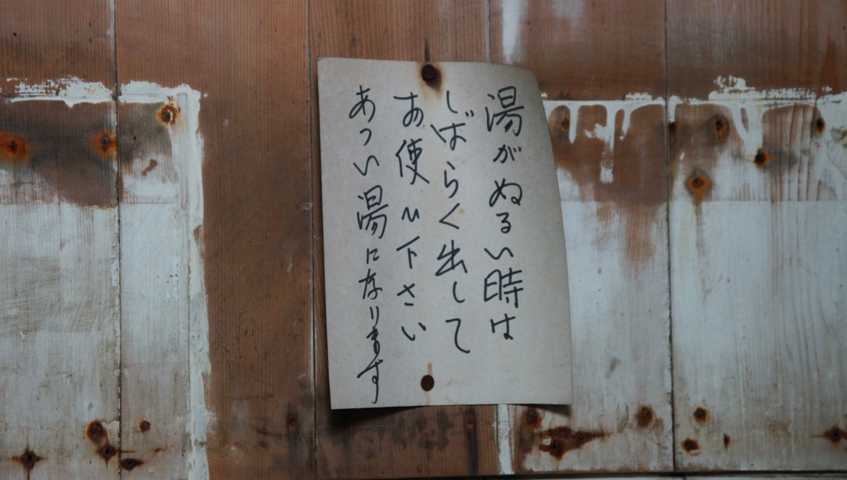 湯がぬるい時は
しばらく出して
お使い下さい
あつい湯になります